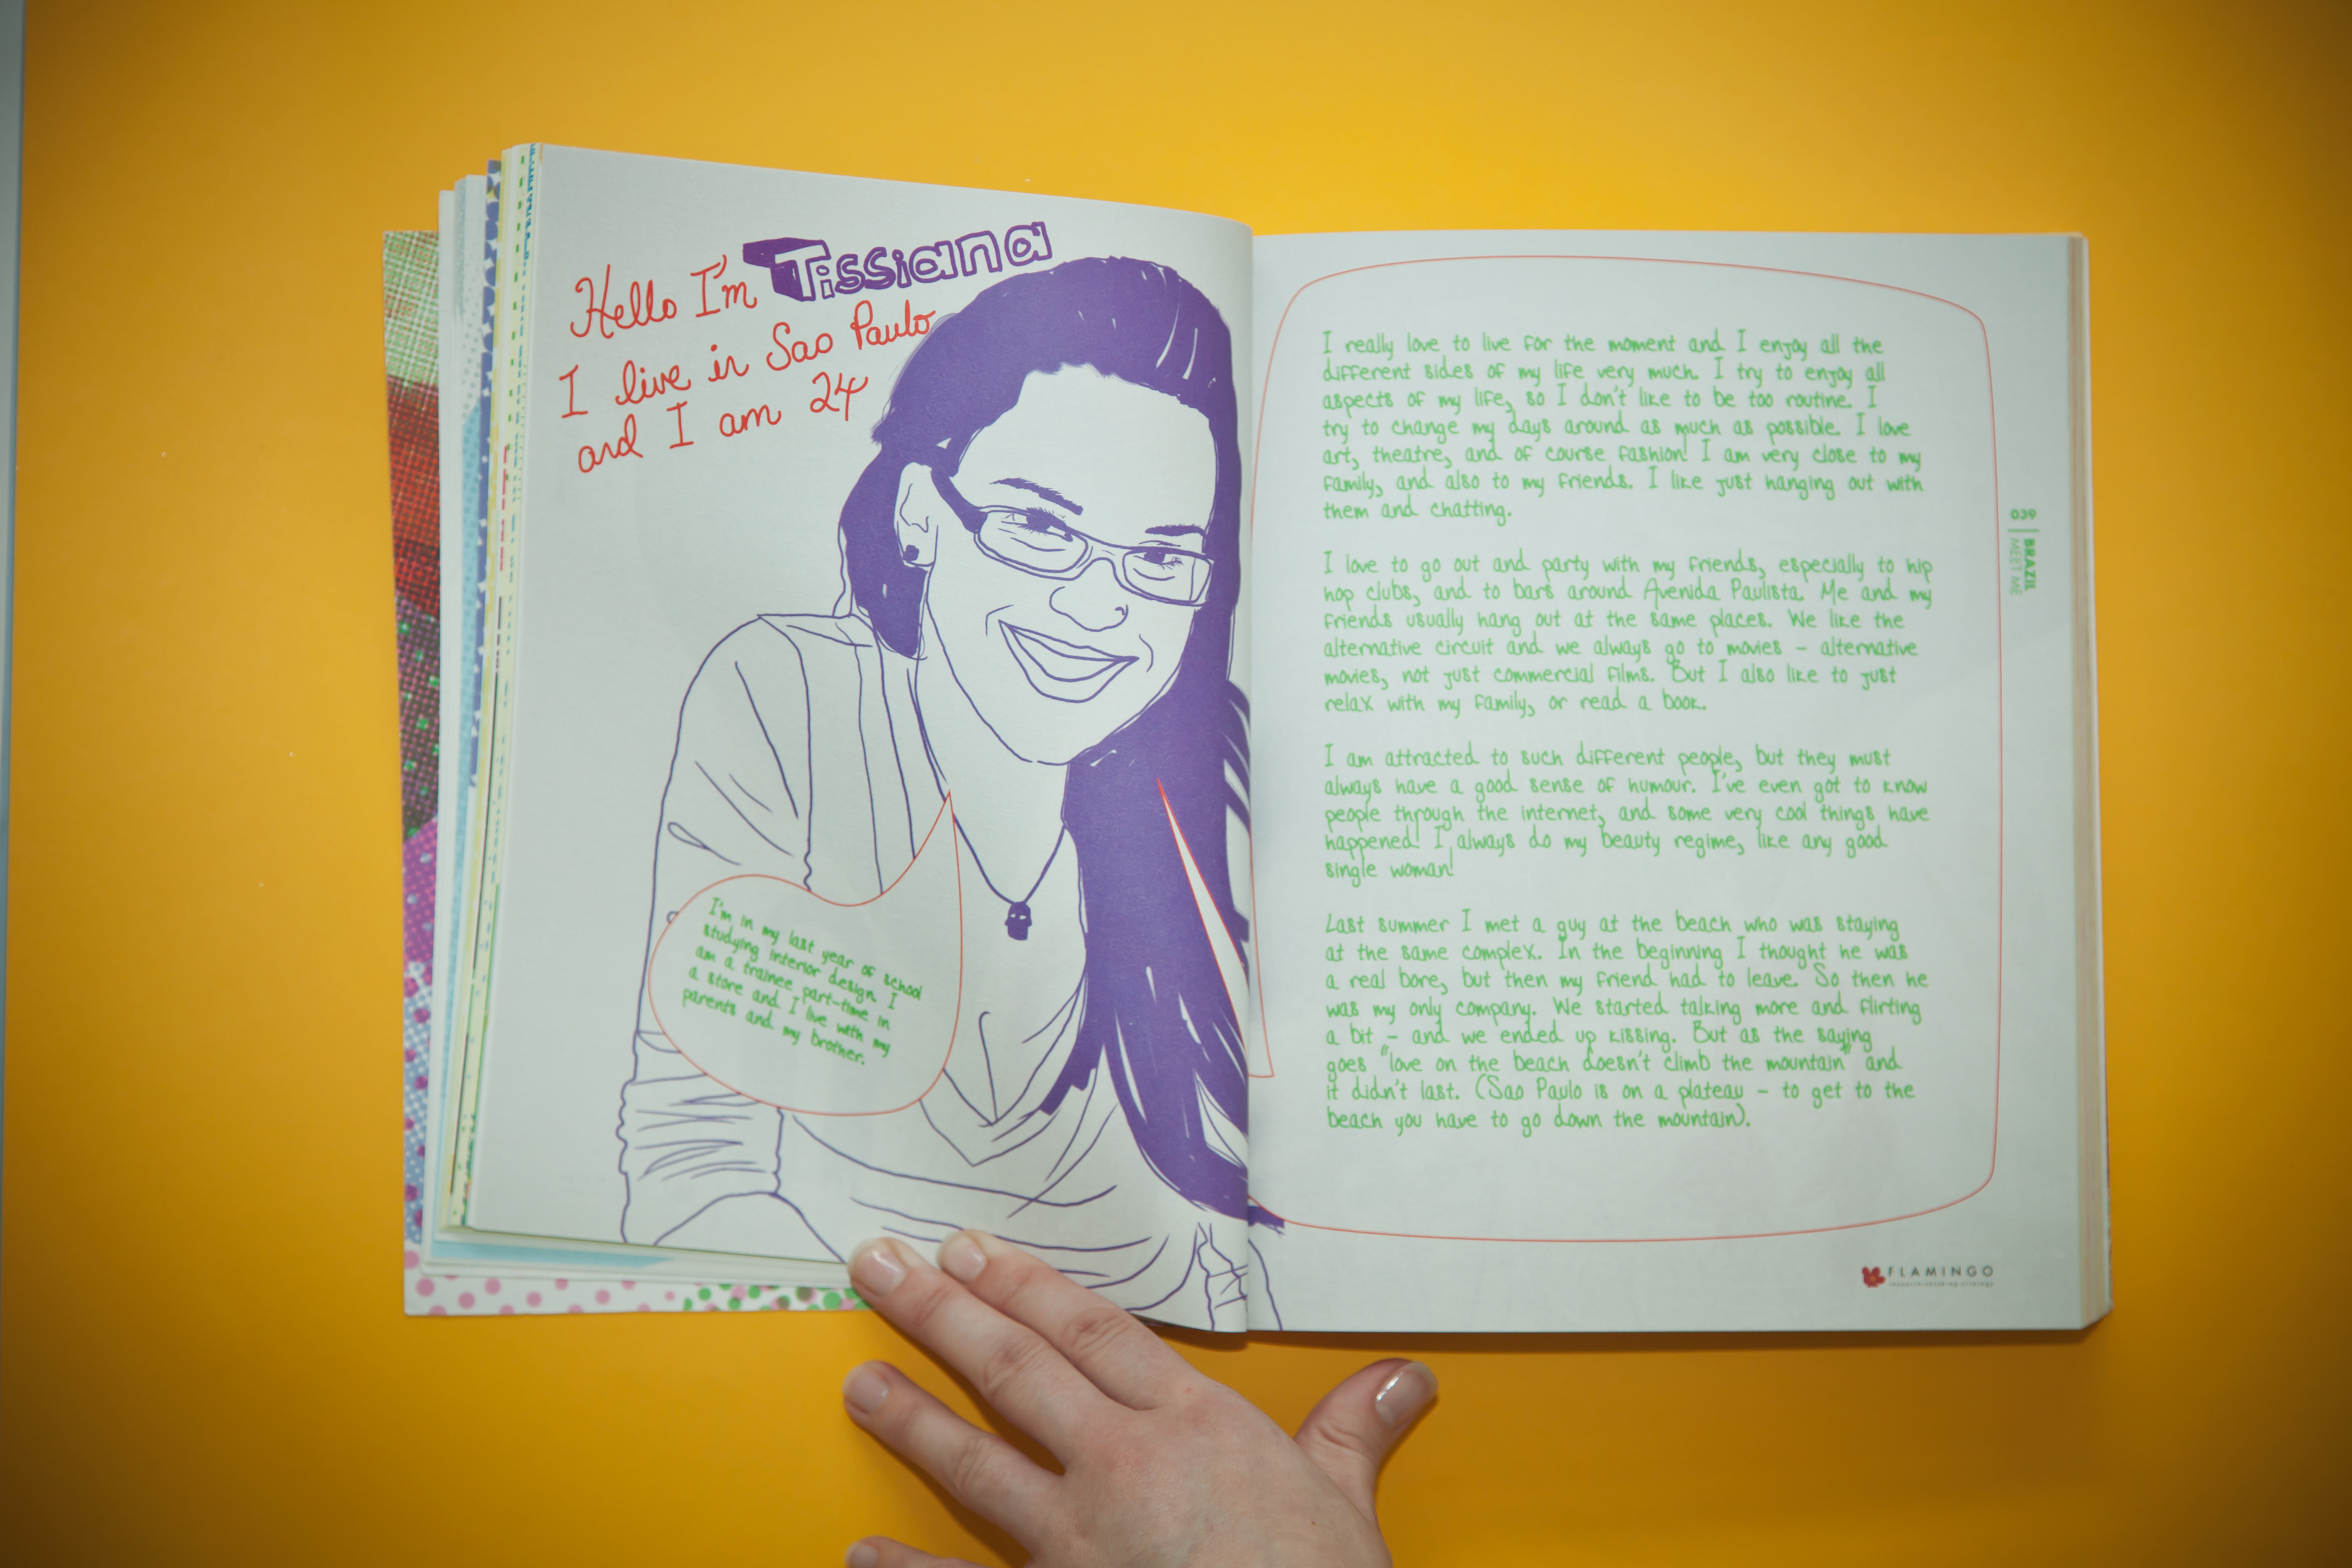 Hello I'm Tissiana
I live in Sao Paulo
and I am 24
I'm in my last year of school
studying interior design. I
am a trainee part-time in
a store and I live with my
parents and my brother.
I really love to live for the moment and I enjoy all the
different sides of my life very much. I try to enjoy all
aspects of my life, so I don't like to be too routine. I
try to change my days around as much as possible. I love
art, theatre, and of course fashion! I am very close to my
family, and also to my friends. I like just hanging out with
them and chatting.
I love to go out and party with my friends, especially to hip
hop clubs, and to bars around Avenida Paulista. Me and my
friends usually hang out at the same places. We like the
alternative circuit and we always go to movies – alternative
movies, not just commercial films. But I also like to just
relax with my family, or read a book.
I am attracted to such different people, but they must
always have a good sense of humour. I've even got to know
people through the internet, and some very cool things have
happened! I always do my beauty regime, like any good
single woman!
Last summer I met a guy at the beach who was staying
at the same complex. In the beginning I thought he was
a real bore, but then my friend had to leave. So then he
was my only company. We started talking more and flirting
a bit – and we ended up kissing. But as the saying
goes "love on the beach doesn't climb the mountain" and
it didn't last. (Sao Paulo is on a plateau – to get to the
beach you have to go down the mountain).
039
BRAZIL
MEET ME
FLAMINGO